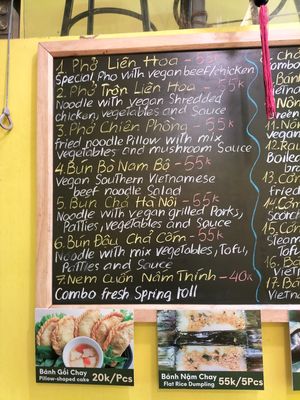 1. Phở Liên Hoa - 55k
Special Pho with vegan beef/chicken
2. Phở Trộn Liên Hoa - 55k
Noodle with vegan Shredded
chicken, vegetables and Sauce
3. Phở Chiên Phồng - 55k
fried noodle Pillow with mix
vegetables and mushroom Sauce
4. Bún Bò Nam Bộ - 55k
Vegan Southern Vietnamese
beef noodle Salad
5. Bún Chả Hà Nội - 55k
Noodle with vegan grilled Porks,
Patties, vegetables and Sauce
6. Bún Đậu Chả Cốm - 55k
Noodle with mix vegetables, Tofu,
Patties and Sauce
7. Nem Cuốn Nấm Thính - 40k
Combo fresh Spring roll
Combo
Bánh Gối Chay
Pillow-shaped cake
20k/Pcs
Bánh Nậm Chay
Flat Rice Dumpling
55k/5Pcs